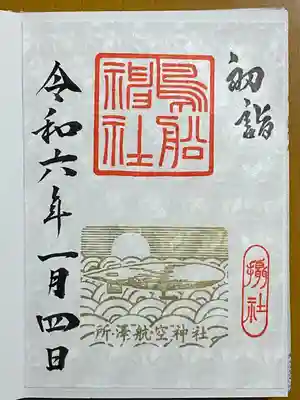 初詣
鳥船
神社
攝社
所澤航空神社
令和六年一月四日